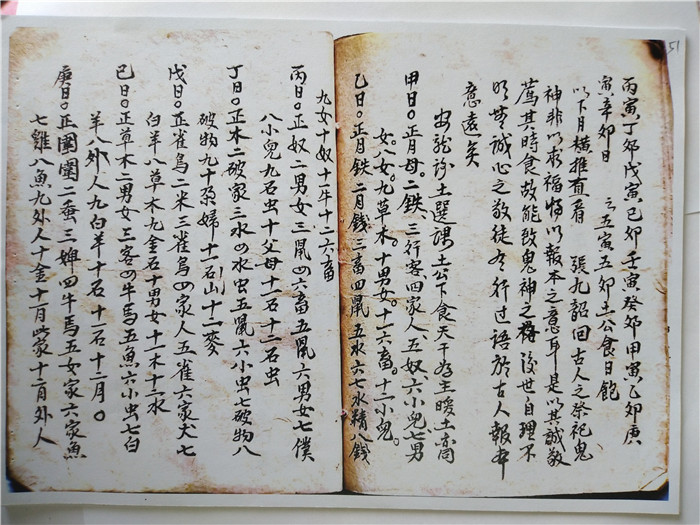 51
丙寅丁卯戊寅己卯壬寅癸卯甲寅乙卯庚
寅辛卯日 之五寅五卯土公食日飽
以下月横推查看 張九韶曰古人之祭祀鬼
神非以求福惟以報本之意耳是以其誠敬
薦其時食故能致鬼神之格後世自理不
明無誠心之敬徒名行过谄於古人報本
意遠矣
安龍診土選課土公下食天干为主暖土亦同
甲日〇正月母。二鉄、三行客、四家人、五奴、六小兒、七男
女、八女。九草木。十男女。十一六畜。十二小兒。
乙日〇正月鉄二月錢三畜四鼠五水六七水精八錢
九女十奴十一牛十二六畜
丙日〇正奴二男女三鼠四六畜五鼠六男女七僕
八小兒九石虫十父母十一石十二石虫
丁日〇正木二破家三水四水虫五鼠六小虫七破物八
破物九十孕婦十一石山十二麥
戊日〇正雀鳥二米三雀鳥四家人五雀六家犬七
白羊八草木九金石十男女十一木十二水
己日〇正草木二男女三客四牛馬五魚六小虫七白
羊八外人九白羊十石十一石十二月〇
庚日〇正圍園二蚕三婢四牛馬五女家六家魚
七雞八魚九外人十金十一月家十二月外人